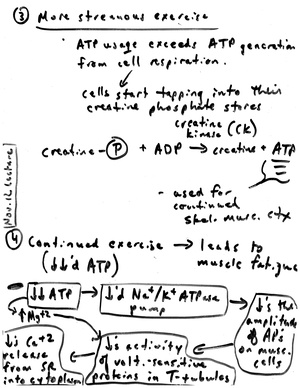 ③ More strenuous exercise
· ATP usage exceeds ATP generation
from cell respiration.
cells start tapping into their
creatine phosphate stores
creatine
kinase (CK)
creatine-Ⓟ + ADP → creatine + ATP
- used for
continued
skel. musc. ctx
④ Continued exercise → leads to
(↓↓'d ATP) muscle fatigue
↓↓ATP → ↓'d Na⁺/K⁺ ATPase
pump
↓'s the
amplitude
of APs
on musc.
cells
↑Mg+2
↓'s activity
of volt.-sensitive
proteins in T-tubules
↓'s Ca+2
release
from SR
into cytoplasm